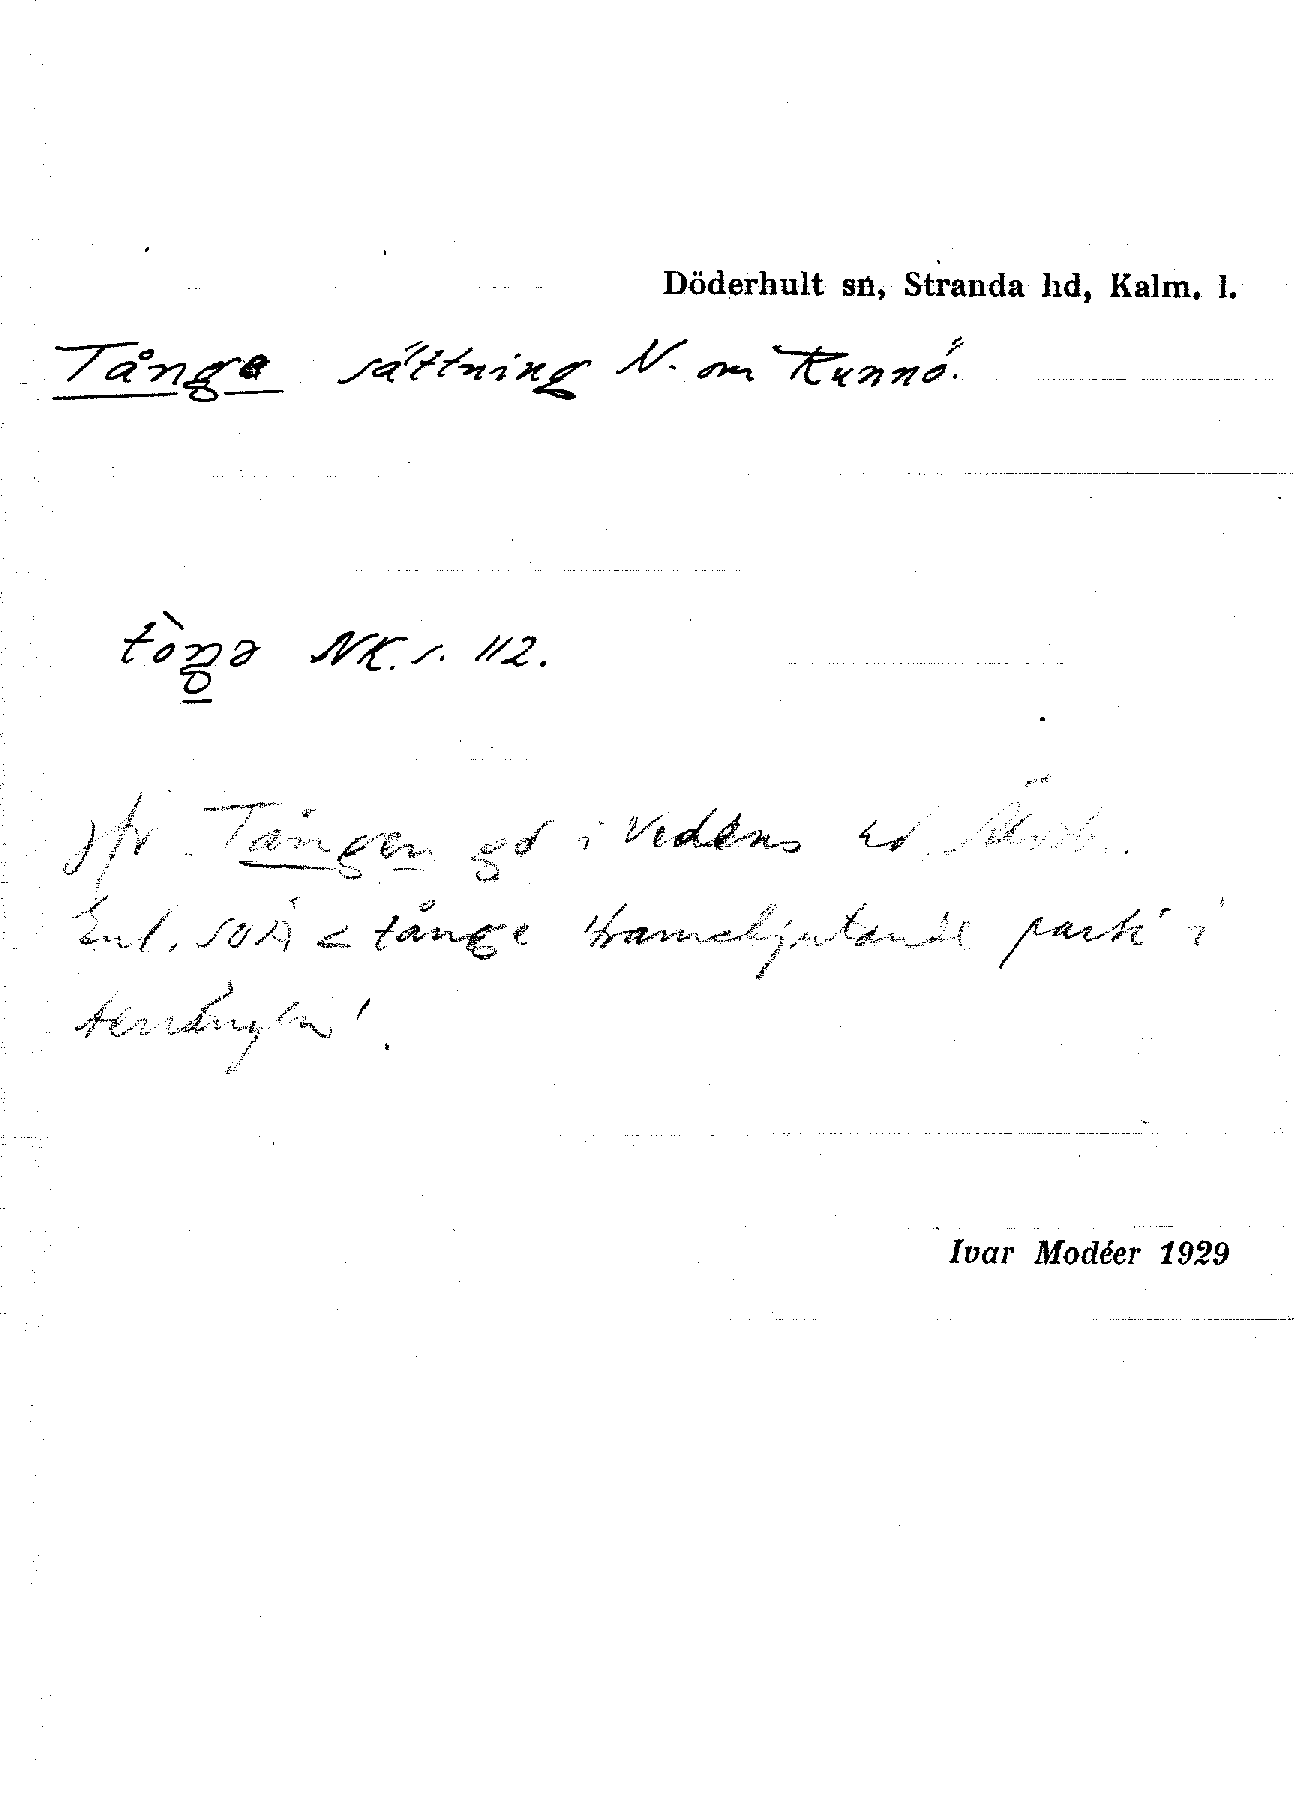 Döderhult sn, Stranda hd, Kalm. l.
Tånge sättning N. om Runnö.
tòŋə NK. s. 112.
jfr Tången gd i Vedens hd, Älvsb.
Enl. SOÄ < tånge 'framskjutande parti i
terrängen'.
Ivar Modéer 1929